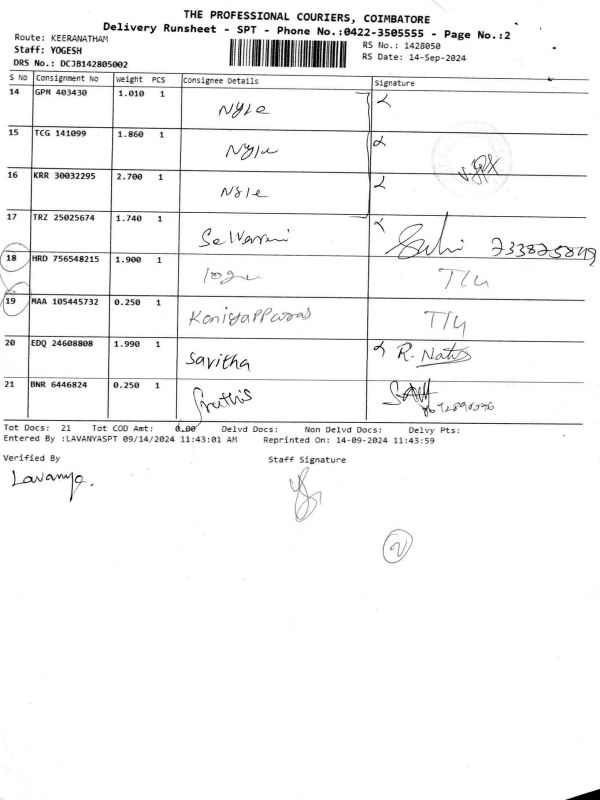 THE PROFESSIONAL COURIERS, COIMBATORE
Delivery Runsheet - SPT - Phone No.:0422-3505555 - Page No.:2
Route: KEERANATHAM
Staff: YOGESH
DRS No.: DCJB142805002
RS No.: 1428050
RS Date: 14-Sep-2024
S No Consignment No Weight PCS Consignee Details Signature
14 GPM 403430 1.010 1 Nyle
15 TCG 141099 1.860 1 Nyle
16 KRR 30032295 2.700 1 Nyle
17 TRZ 25025674 1.740 1 Selvarani
18 HRD 756548215 1.900 1 T/4
19 MAA 105445732 0.250 1 T/4
20 EDQ 24608808 1.990 1 Savitha R.
21 BNR 6446824 0.250 1
Tot Docs: 21 Tot COD Amt: 0.00 Delvd Docs: Non Delvd Docs: Delvy Pts:
Entered By :LAVANYASPT 09/14/2024 11:43:01 AM Reprinted On: 14-09-2024 11:43:59
Verified By Staff Signature
Lavanya.
2